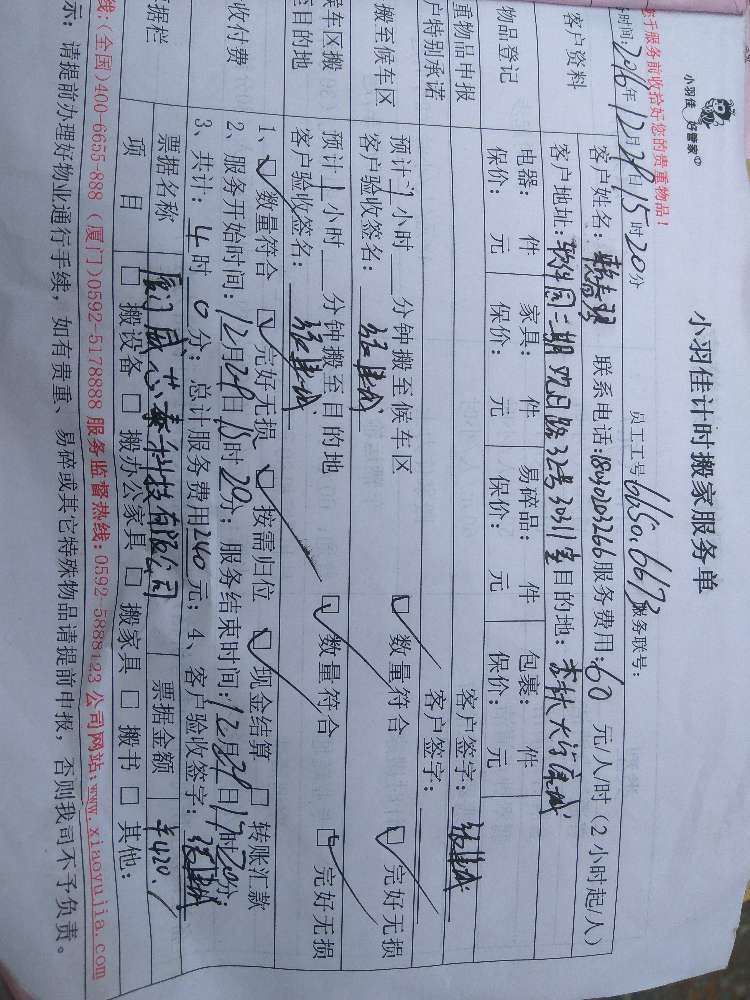 小羽佳
好管家
小羽佳计时搬家服务单
服务前收拾好您的贵重物品！
员工工号 6650.6673 服务联号：
时间：2016年12月28日15时20分
客户资料
客户姓名： 联系电话：18030203266 服务费用：60 元/人/时（2小时起/人）
客户地址：软件园三期 32号3031室 目的地：
物品登记
电器： 件 家具： 件 易碎品： 件 包裹： 件
保价： 元 保价： 元 保价： 元 保价： 元
重物品申报 客户签字：
户特别承诺 客户签字：
搬至候车区
预计 1 小时 分钟搬至候车区 数量符合 完好无损
客户验收签名：
候车区搬
至目的地
预计 1 小时 分钟搬至目的地 数量符合 完好无损
客户验收签名：
收付费
1、 数量符合 完好无损 按需归位 现金结算 转账汇款
2、服务开始时间：12月28日15时20分；服务结束时间：12月28日17时20分；
3、共计：4时0分；总计服务费用240元；4、客户验收签字：
据栏
票据名称 科技有限公司 票据金额 ¥420./
项 目 搬设备 搬办公家具 搬家具 搬书 其他：
线：(全国)400-6655-888 (厦门)0592-5178888 服务监督热线：0592-5888123 公司网站：www.xiaoyujia.com
示：请提前办理好物业通行手续，如有贵重、易碎或其它特殊物品请提前申报，否则我司不予负责。